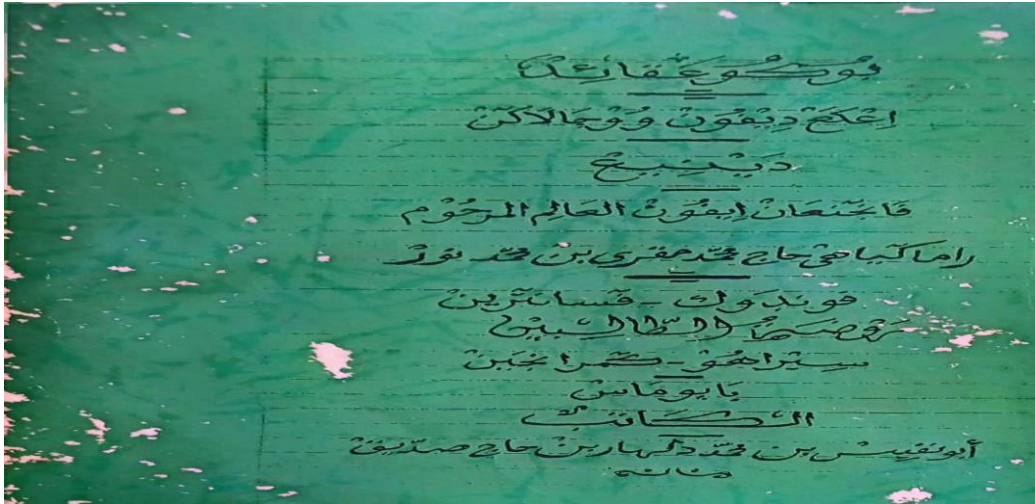 بوكو عقائد
اڠكڠ ديفون ووجالاكن
دينيڠ
فاجڠنعان ايفون العالم المرحوم
راما كياهي حاج محمد مقري بن محمد نور
فوندوك - فسانترين
روضة الطالبين
سيراهو - كمرانجين
بايوماس
الكاتب
أبو نفيس بن محمد دلهار بن حاج صديق